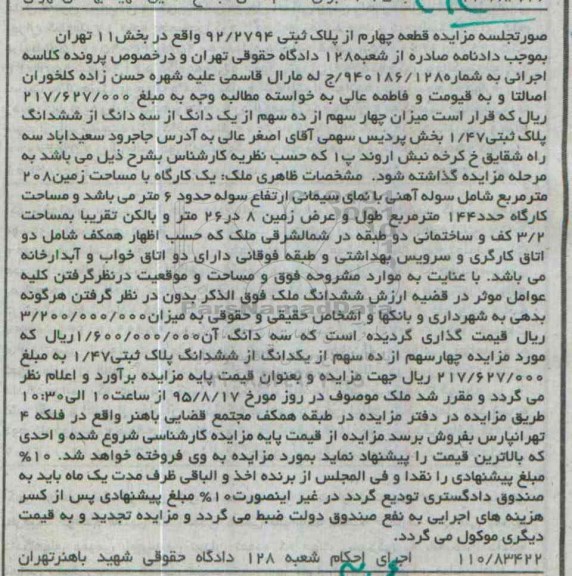 صورتجلسه مزایده قطعه چهارم از پلاک ثبتی ۹۲/۲۷۹۴ واقع در بخش۱۱ تهران
بموجب دادنامه صادره از شعبه۱۲۸ دادگاه حقوقی تهران و درخصوص پرونده کلاسه
اجرائی به شماره۹۴۰۱۸۶/۱۲۸/ج له مارال قاسمی علیه شهره حسن زاده کلخوران
اصالتا و به قیمومت و فاطمه عالی به خواسته مطالبه وجه به مبلغ ۲۱۷/۶۲۷/۰۰۰
ریال که قرار است میزان چهار سهم از ده سهم از یک دانگ از سه دانگ از ششدانگ
پلاک ثبتی۱/۴۷ بخش پردیس سهمی آقای اصغر عالی به آدرس جاجرود سعیداباد سه
راه شقایق خ کرخه نبش اروند پ۱ که حسب نظریه کارشناس بشرح ذیل می باشد به
مرحله مزایده گذاشته شود. مشخصات ظاهری ملک: یک کارگاه با مساحت زمین۲۰۸
مترمربع شامل سوله آهنی با نمای سیمانی ارتفاع سوله حدود ۶ متر می باشد و مساحت
کارگاه حدد۱۴۴ مترمربع طول و عرض زمین ۸ در۲۶ متر و بالکن تقریبا بمساحت
۳/۲ کف و ساختمانی دو طبقه در شمالشرقی ملک که حسب اظهار همکف شامل دو
اتاق کارگری و سرویس بهداشتی و طبقه فوقانی دارای دو اتاق خواب و آبدارخانه
می باشد. با عنایت به موارد مشروحه فوق و مساحت و موقعیت درنظرگرفتن کلیه
عوامل موثر در قضیه ارزش ششدانگ ملک فوق الذکر بدون در نظر گرفتن هرگونه
بدهی به شهرداری و بانکها و اشخاص حقیقی و حقوقی به میزان۳/۲۰۰/۰۰۰/۰۰۰
ریال قیمت گذاری گردیده است که سه دانگ آن۱/۶۰۰/۰۰۰/۰۰۰ریال که
مورد مزایده چهارسهم از ده سهم از یکدانگ از ششدانگ پلاک ثبتی۱/۴۷ به مبلغ
۲۱۷/۶۲۷/۰۰۰ ریال جهت مزایده و بعنوان قیمت پایه مزایده برآورد و اعلام نظر
می گردد و مقرر شد ملک موصوف در روز مورخ ۹۵/۸/۱۷ از ساعت۱۰ الی۱۰:۳۰
طریق مزایده در دفتر مزایده در طبقه همکف مجتمع قضایی باهنر واقع در فلکه ۴
تهرانپارس بفروش برسد مزایده از قیمت پایه مزایده کارشناسی شروع شده و احدی
که بالاترین قیمت را پیشنهاد نماید بمورد مزایده به وی فروخته خواهد شد. ۱۰%
مبلغ پیشنهادی را نقدا و فی المجلس از برنده اخذ و الباقی ظرف مدت یک ماه باید به
صندوق دادگستری تودیع گردد در غیر اینصورت۱۰% مبلغ پیشنهادی پس از کسر
هزینه های اجرایی به نفع صندوق دولت ضبط می گردد و مزایده تجدید و به قیمت
دیگری موکول می گردد.
۱۱۰/۸۳۴۲۲ اجرای احکام شعبه ۱۲۸ دادگاه حقوقی شهید باهنرتهران